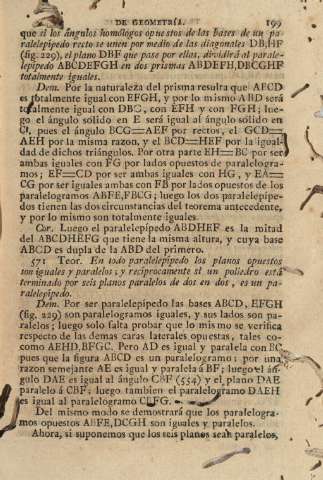 DE GEOMETRÍA. 199
que si los ángulos homólogos opuestos de las bases de un pa-
ralelepípedo recto se unen por medio de las diagonales DB,HF
(fig. 229), el plano DBF que pase por ellas, dividirá al parale-
lepípedo ABCDEFGH en dos prismas ABDEFH,DBCGHF
totalmente iguales.
Dem. Por la naturaleza del prisma resulta que ABCD
es totalmente igual con EFGH, y por lo mismo ABD será
totalmente igual con DBC, con EFH y con FGH; lue-
go el ángulo sólido en E será igual al ángulo sólido en
C, pues el ángulo BCG=AEF por rectos, el GCD=
AEH por la misma razon, y el BCD=HEF por la igual-
dad de dichos triángulos. Por otra parte EH=BC por ser
ambas iguales con FG por lados opuestos de paralelogra-
mos; EF=CD por ser ambas iguales con HG, y EA=
CG por ser iguales ambas con FB por lados opuestos de los
paralelogramos ABFE,FBCG; luego los dos paralelepípe-
dos tienen las dos circunstancias del teorema antecedente,
y por lo mismo son totalmente iguales.
Cor. Luego el paralelepípedo ABDHEF es la mitad
del ABCDHEFG que tiene la misma altura, y cuya base
ABCD es dupla de la ABD del primero.
571 Teor. En todo paralelepípedo los planos opuestos
son iguales y paralelos; y recíprocamente si un poliedro está
terminado por seis planos paralelos de dos en dos, es un pa-
ralelepípedo.
Dem. Por ser paralelepípedo las bases ABCD, EFGH
(fig. 229) son paralelogramos iguales, y sus lados son pa-
ralelos; luego solo falta probar que lo mismo se verifica
respecto de las demas caras laterales opuestas, tales co-
como AEHD,BFGC. Pero AD es igual y paralela con BC
pues que la figura ABCD es un paralelogramo: por una
razon semejante AE es igual y paralela á BF; luego el án-
gulo DAE es igual al ángulo CBF (554) y el plano DAE
paralelo á CBF; luego tambien el paralelogramo DAEH
es igual al paralelogramo CBFG.
Del mismo modo se demostrará que los paralelogra-
mos opuestos ABFE,DCGH son iguales y paralelos.
Ahora, si suponemos que los seis planos sean paralelos,